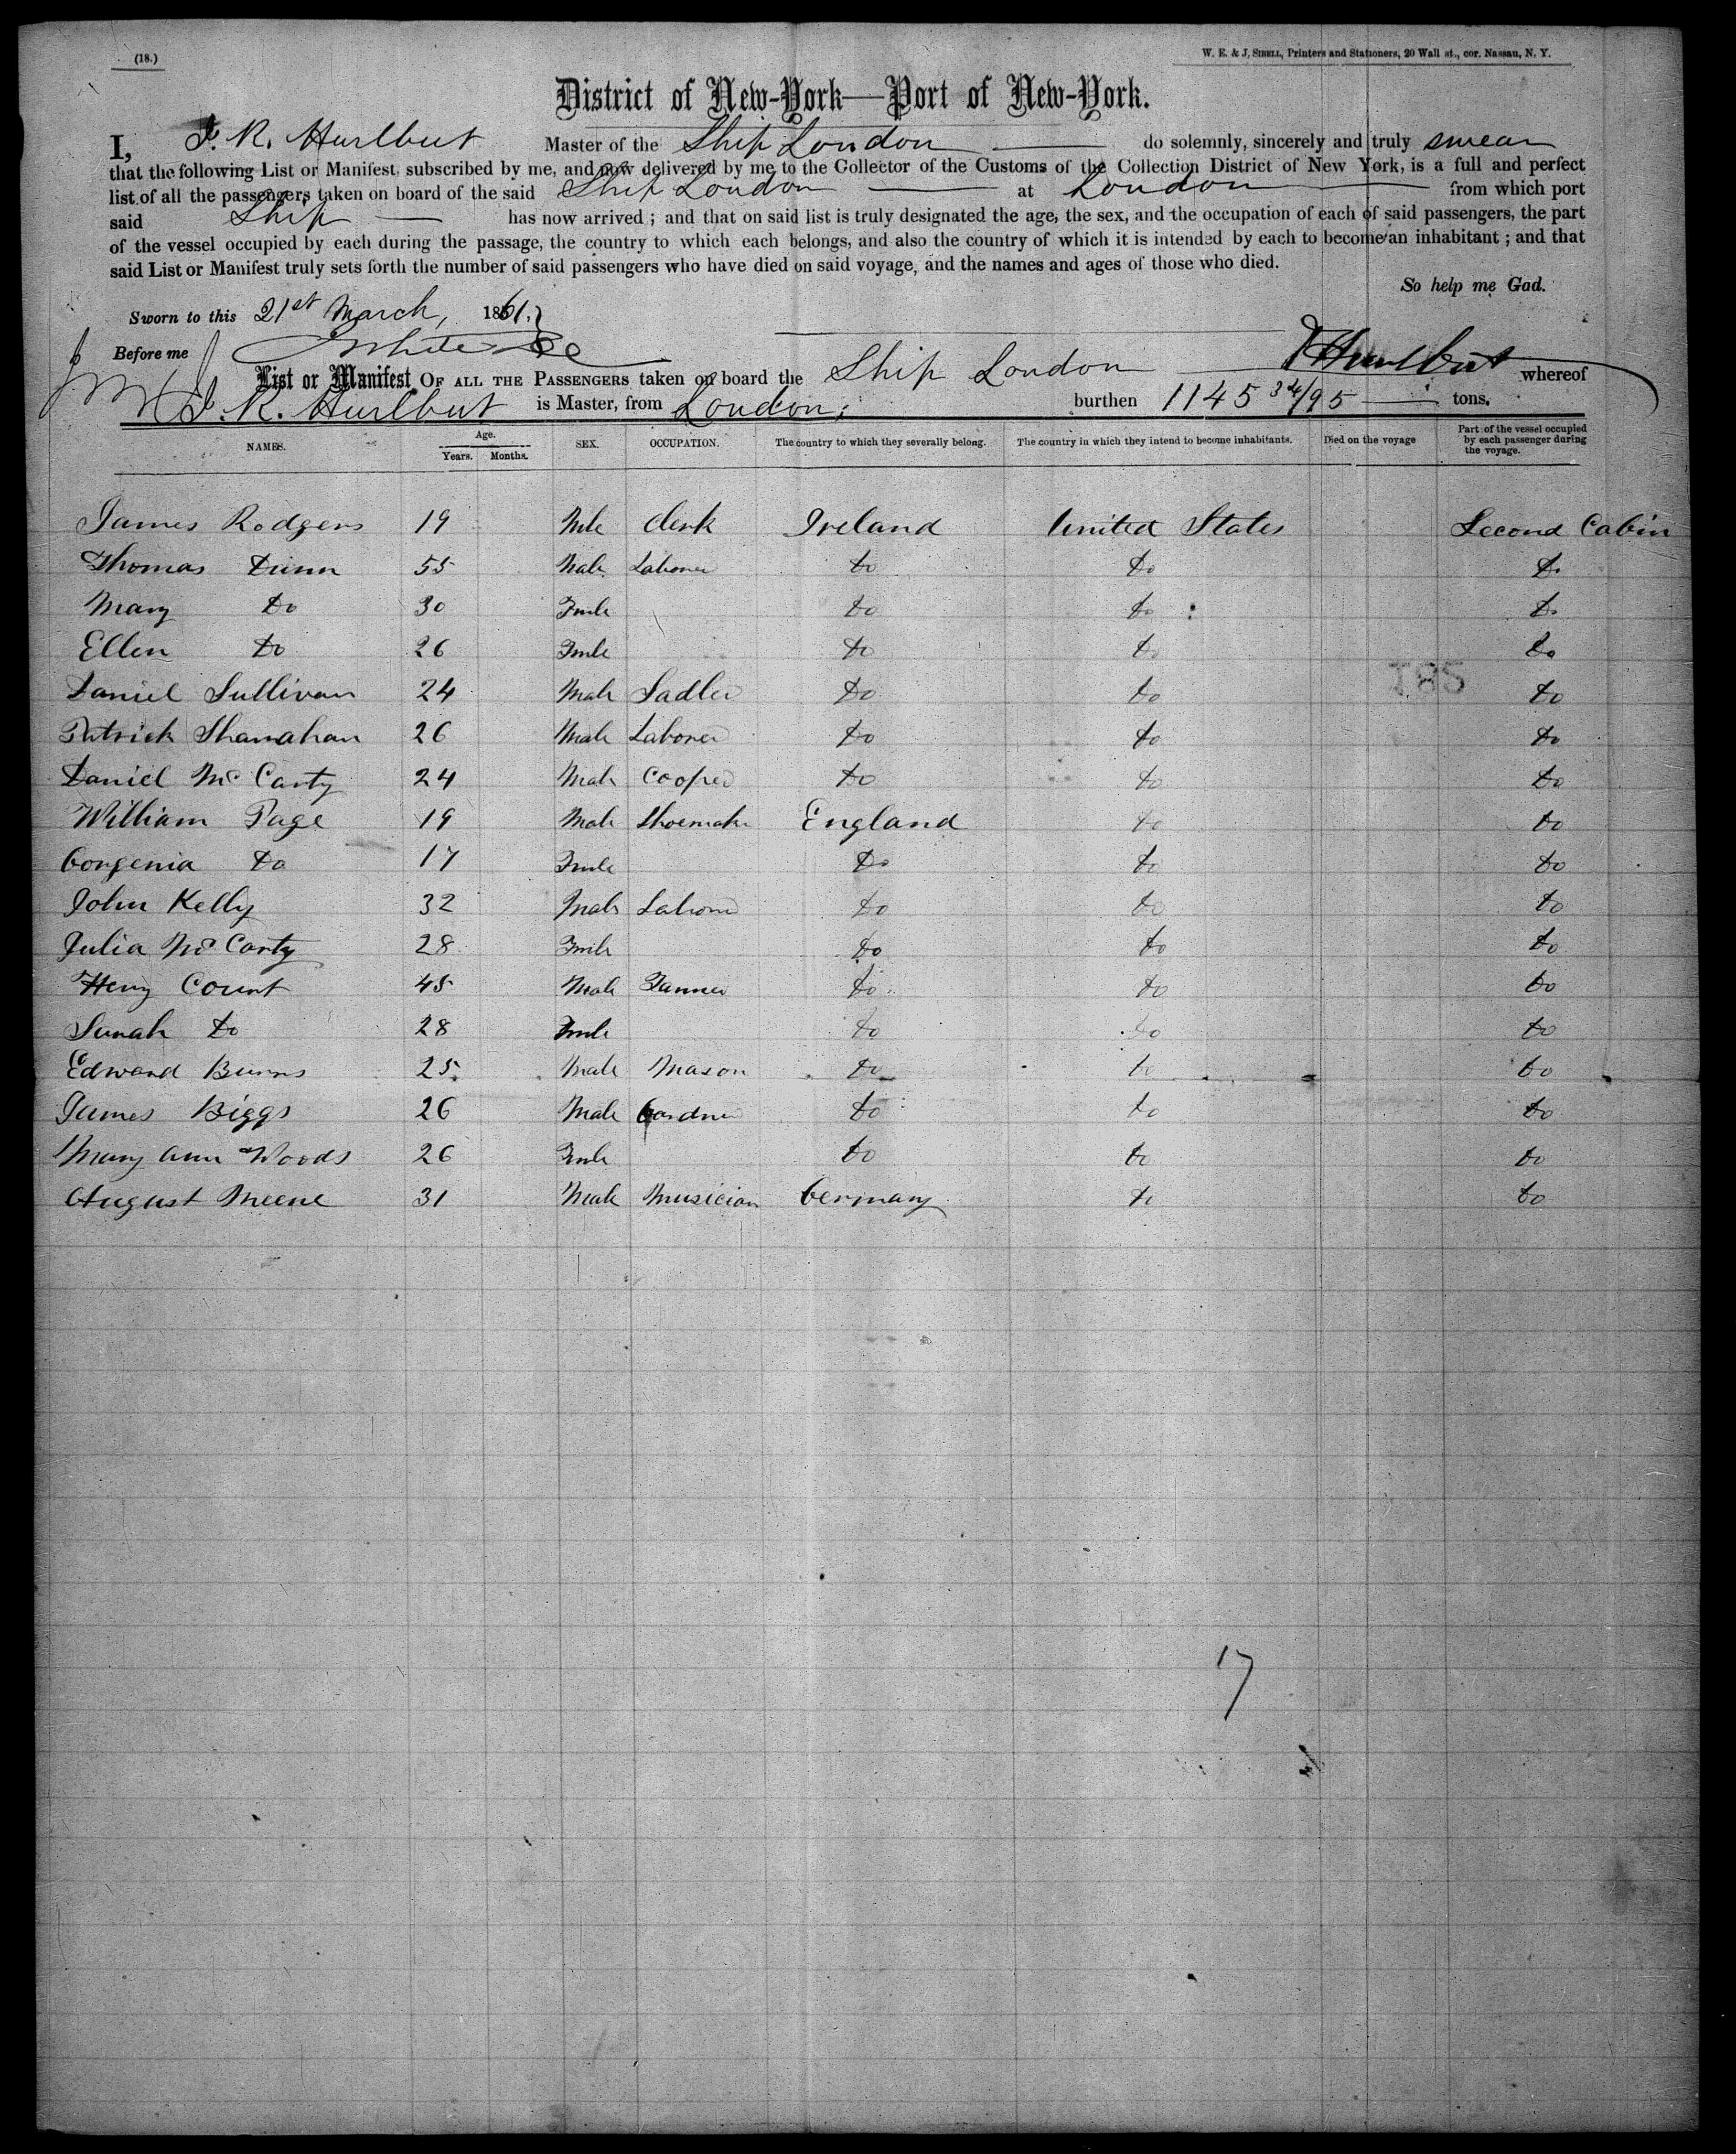 (18.)
W. E. & J. SIBELL, Printers and Stationers, 20 Wall st., cor. Nassau, N. Y.
District of New-York—Port of New-York.
I, F. R. Hurlbut Master of the Ship London do solemnly, sincerely and truly swear
that the following List or Manifest, subscribed by me, and now delivered by me to the Collector of the Customs of the Collection District of New York, is a full and perfect
list of all the passengers taken on board of the said Ship London at London from which port
said Ship has now arrived ; and that on said list is truly designated the age, the sex, and the occupation of each of said passengers, the part
of the vessel occupied by each during the passage, the country to which each belongs, and also the country of which it is intended by each to become an inhabitant ; and that
said List or Manifest truly sets forth the number of said passengers who have died on said voyage, and the names and ages of those who died.
So help me God.
Sworn to this 21st March, 1861.
Before me White Hurlbut
List or Manifest OF ALL THE PASSENGERS taken on board the Ship London whereof
F. R. Hurlbut is Master, from London, burthen 1145 34/95 tons.
NAMES. Age. Years. Months. SEX. OCCUPATION. The country to which they severally belong. The country in which they intend to become inhabitants. Died on the voyage Part of the vessel occupied by each passenger during the voyage.
James Rodgers 19 Mle Clerk Ireland United States Second Cabin
Thomas Dunn 55 Male Laborer do do do
Mary do 30 Fmle do do do
Ellen do 26 Fmle do do do
Daniel Sullivan 24 Male Sadler do do do
Patrick Shanahan 26 Male Laborer do do do
Daniel McCarty 24 Male Cooper do do do
William Page 19 Male Shoemakr England do do
Gorgenia do 17 Fmle do do do
John Kelly 32 Male Laborer do do do
Julia McCarty 28 Fmle do do do
Henry Count 45 Male Tanner do do do
Surah do 28 Fmle do do do
Edward Burns 25 Male Mason do do do
James Biggs 26 Male Gardner do do do
Mary Ann Woods 26 Fmle do do do
August Meene 31 Male Musician Germany do do
17